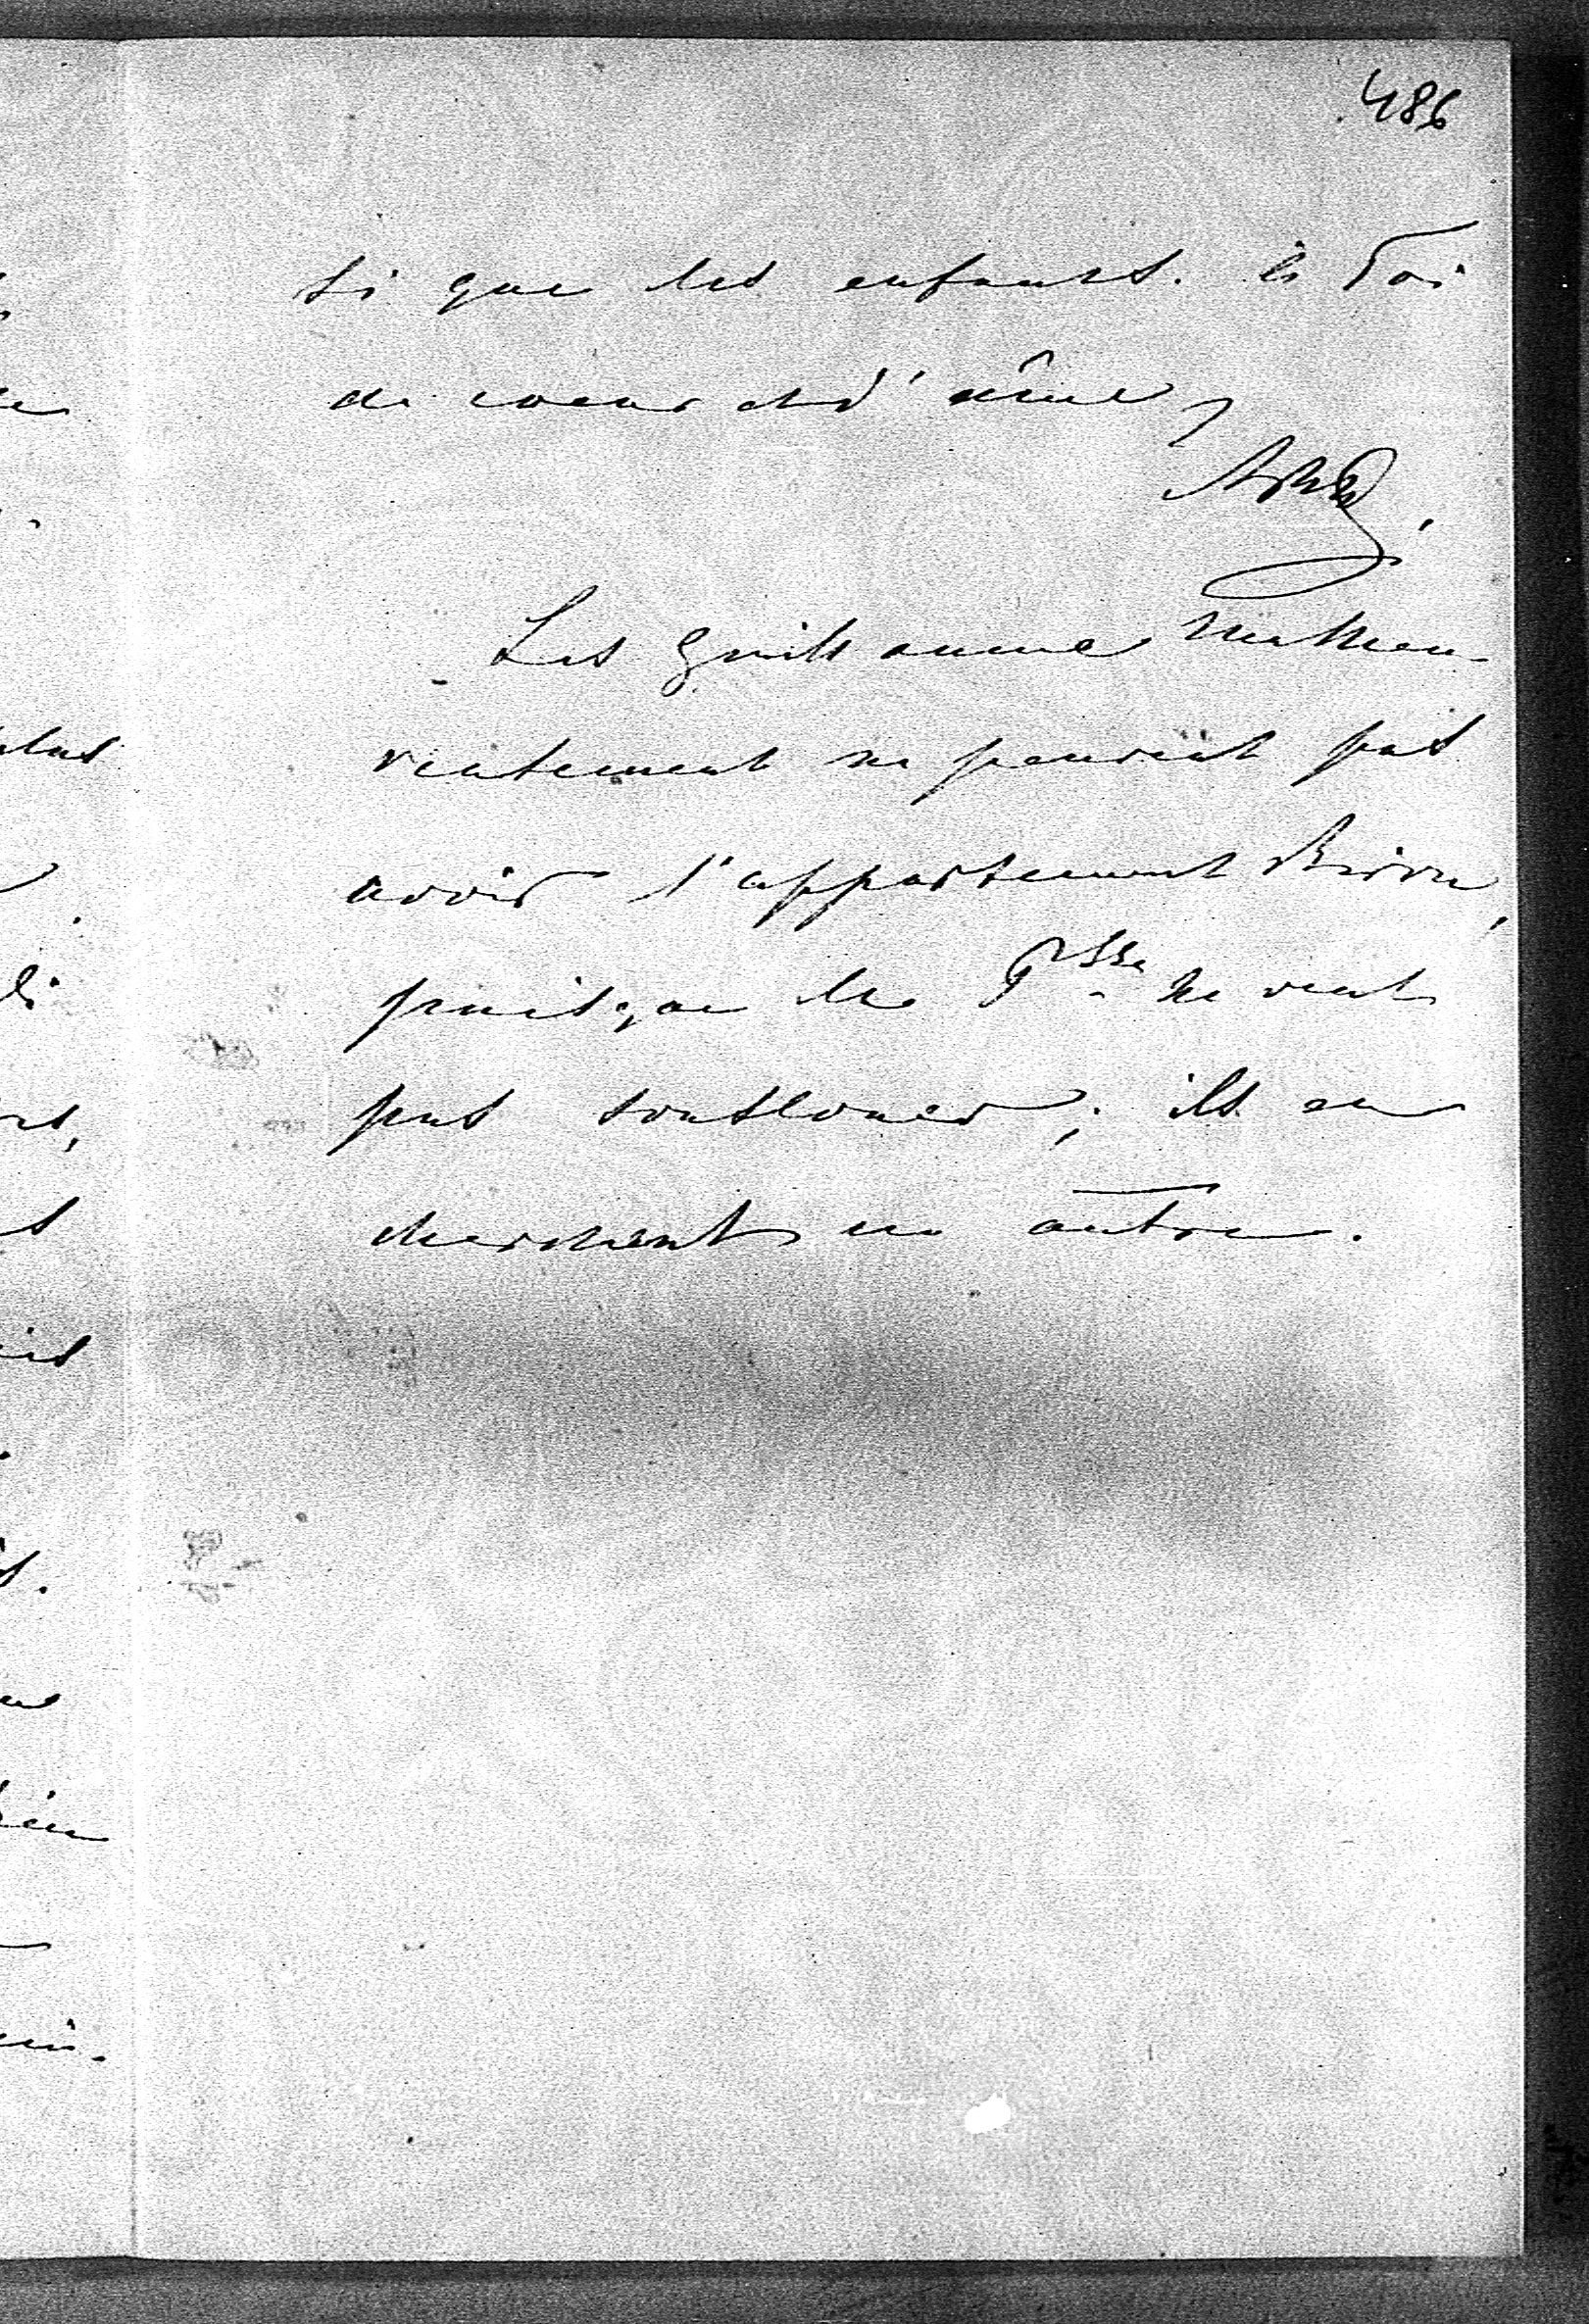 486
si que les enfants. à Toi
de coeur et d'âme
Les Guillaume malheu-
reusement ne peuvent pas
avoir l'appartement Biron,
puisque la Psse ne veut
pas souslouer; ils en
cherchent un autre.